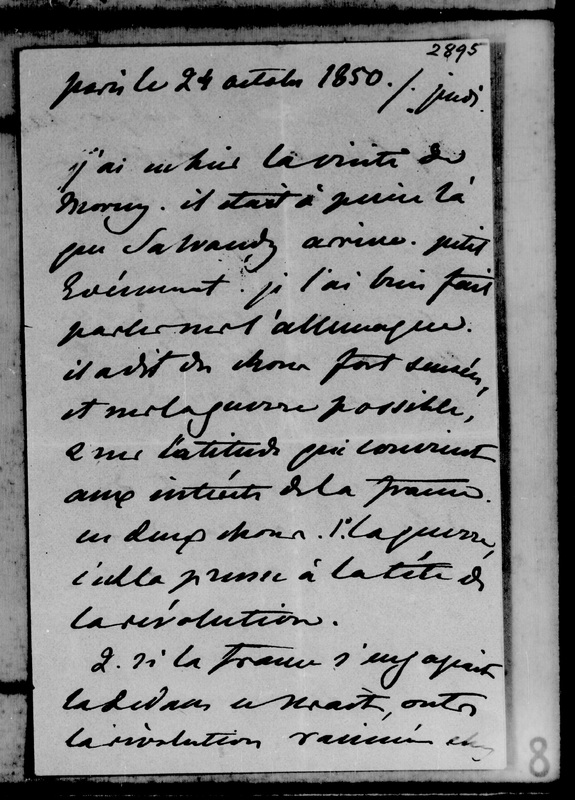 2895
paris le 24 octobre 1850. / jeudi.
j'ai eu hier la visite de
Morny. il était à peine là
que Salvandy arrive. petit
Evénement. je l'ai bien fait
parler sur l'allemagne.
il a dit des choses fort sensées,
et sur la guerre possible,
& sur l'attitude qui convient
aux intérêts de la france.
en deux choses. 1° la guerre,
c'est la prusse à la tête de
la révolution.
2. si la france s'engageait
là dedans ce serait, outre
la révolution ranimée chez
8